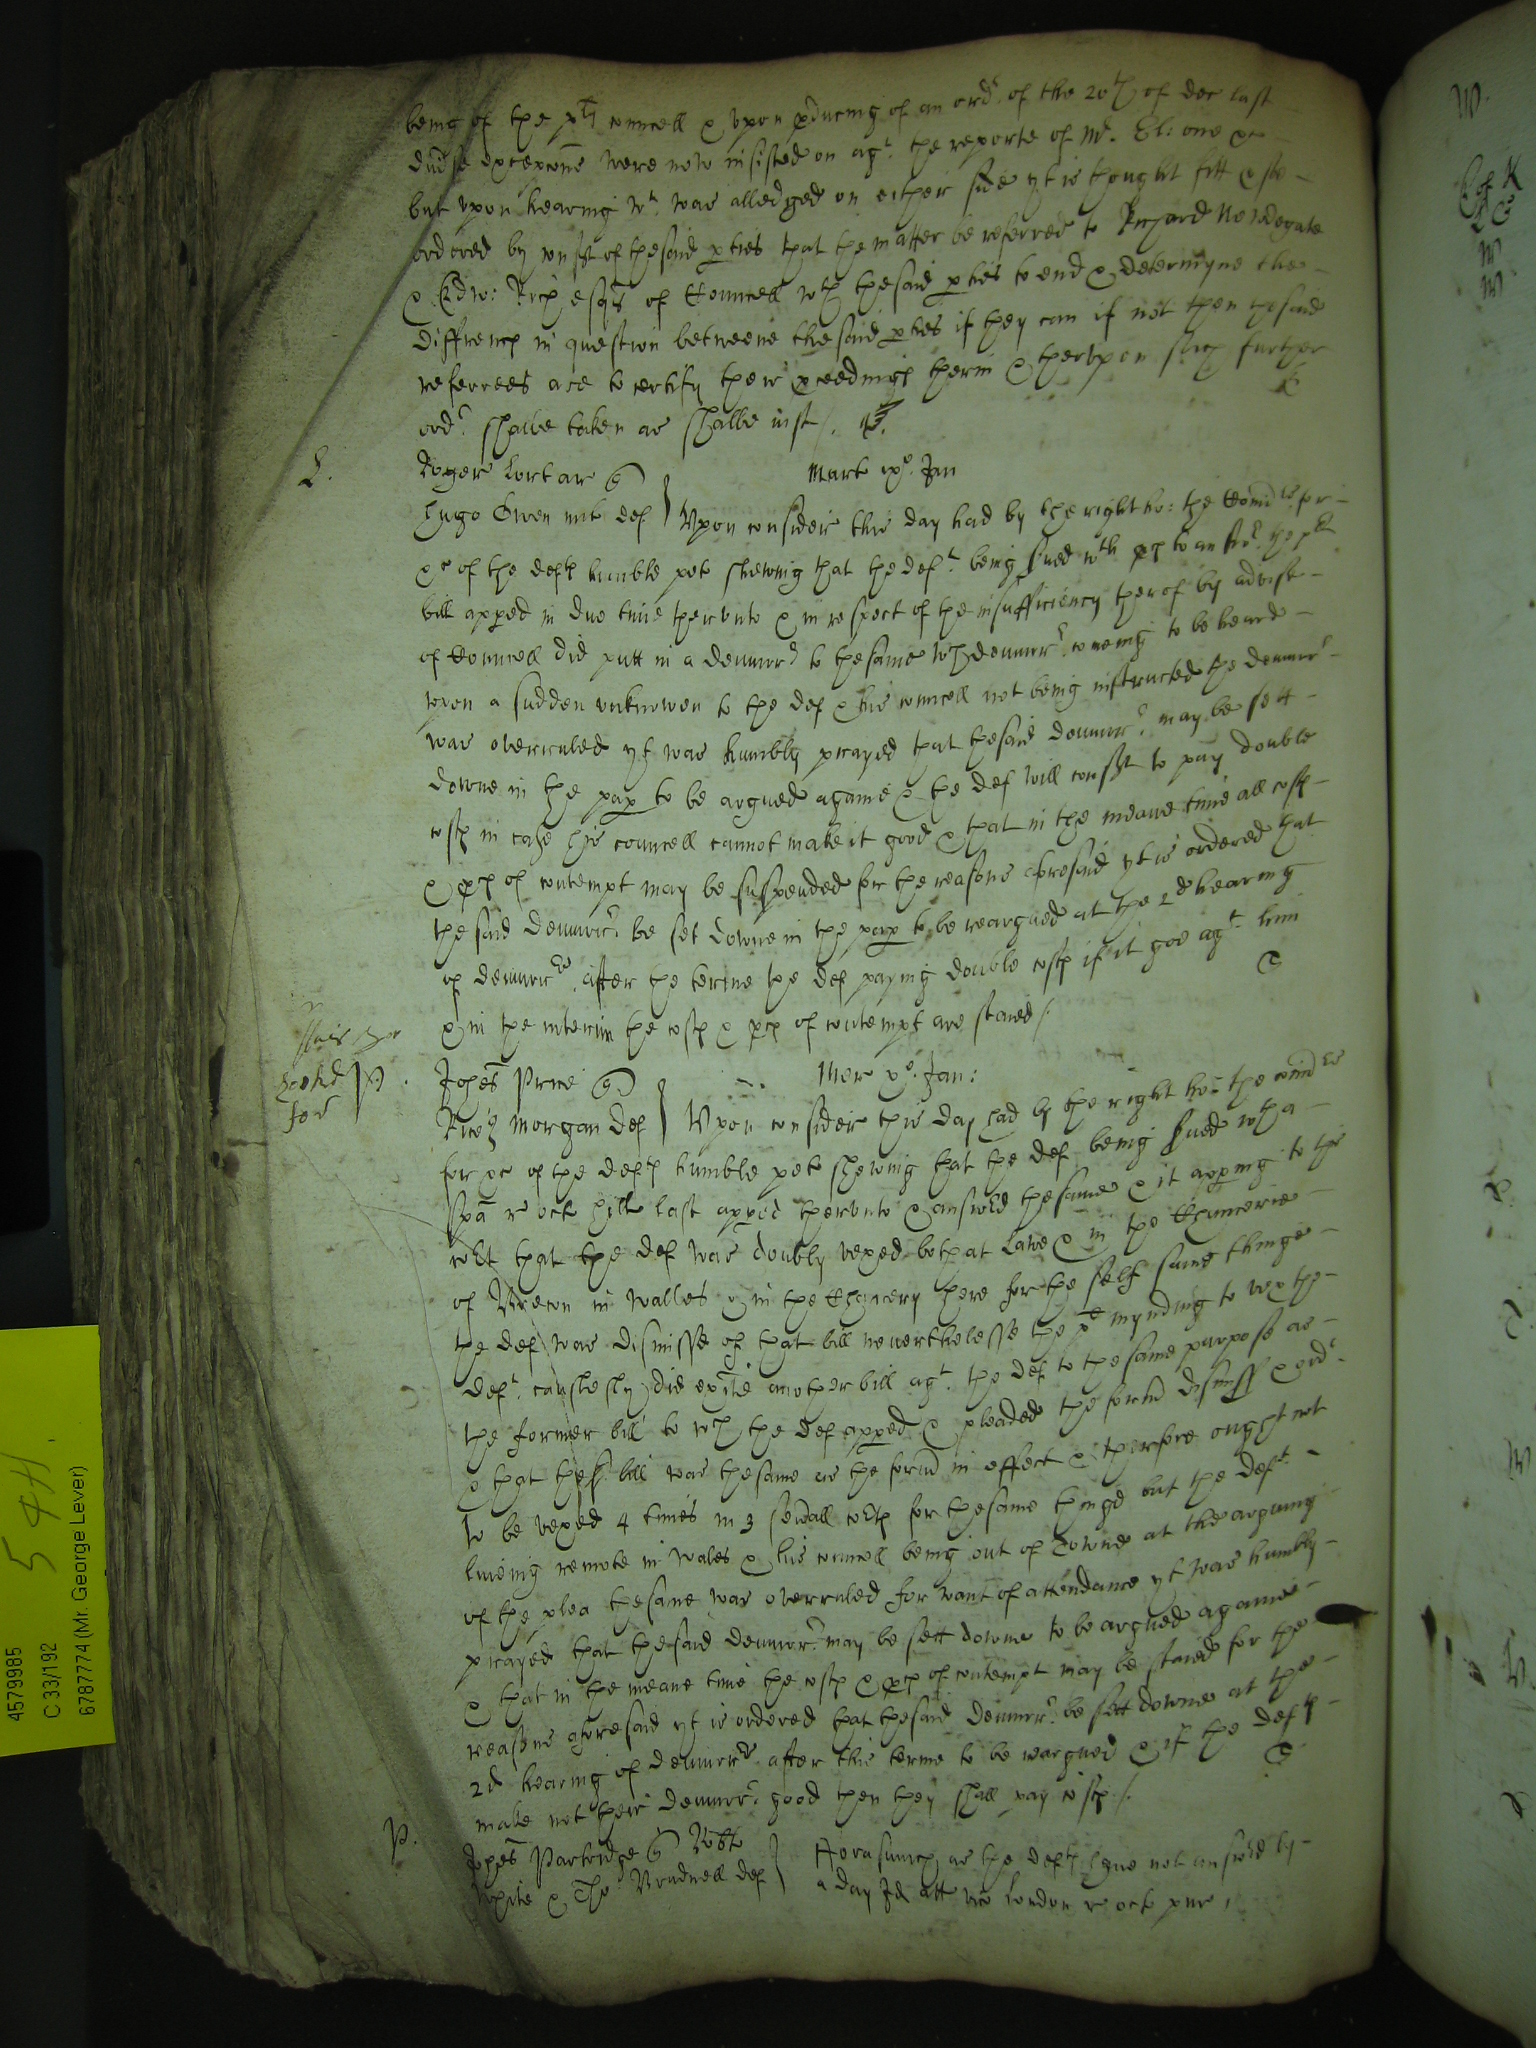 being of the plts councell & upon pducing of an ordr. of the 20th of dec last
divse excepcons were now insisted on agt. the reporte of Mr. Eltone &c
but upon hearing wt. was alledged on either side yt is thought fitt & soe
ordered by const of thesaid pties that the matter be referred to Richard Newdegate
& Edw: Rich esqrs of Councell wth thesaid pties to end & determyne the
diffrence in question betweene thesaid pties if they can if not then thesaid
referrees are to certify their pceedings therin & therupon such further
ordr. shalbe taken as shalbe iust /.
L. Roger Lortar q
Hugo Owen mit def } Mart ixo. Jan
Upon consider this day had by the right ho: the Comrs. for
&c of the defts humble peto shewing that the deft. being sued wth pcs to answr. the plts
bill apped in due time therunto & in respect of the insufficiency therof by advise
of Councell did putt in a demurr. to thesame wch demurr. comeing to be heard
upon a sudden unknowen to the def & his councell not being instructed the demurr.
was overruled yt was humbly prayed that thesaid demurr. may be sett
downe in the pap to be argued againe & the def will consent to pay double
costs in case his councell cannot make it good & that in the meane time all costs
& pcs of contempt may be suspended for the reasons aforesaid yt is ordered that
the said demurr. be set downe in the pap to be reargued at the 2d hearing
of demurrs. after the terme the def paying double costs if it goe agt. him
& in the interim the costs & pcs of contempt are staied /.
P. Johes Price q
Ricus Morgan def } Mer xo. Jan:
Upon consider this day had by the right ho: the comrs
for &c of the defts humble peto shewing that the def being sued wth a
spa r octo Hill last apped therunto & answd thesame & it apping to the
cort that the def was doubly vexed both at Lawe & in the Chancerie
of Brecon in Walles & in the Chancery here for the self same things
the def was dismisse of that bill neverthelesse the plt mynding to vex the
deft. causlesly did exhite another bill agt. the def to the same purpose as
the former bill to wch the def apped & pleaded the formr dismiss & ordr.
& that the sd. bill was thesame as the formr in effect & therfore ought not
to be vexed 4 times in 3 sevall corts for thesame things but the deft.
liueing remote in Wales & his councell being out of Towne at the arguing
of the plea thesame was overruled for want of attendance yt was humbly
prayed that thesaid demurr. may be sett downe to be argued againe
& that in the meane time the costs & pcs of contempt may be staied for the
reasons aforesaid yt is ordered that thesaid demurr. be sett downe at the
2d hearing of demurrs after this terme to be reargued & if the defts
make not their demurr. good then they shall pay costs /.
P. Johes Partridge q Robto
White & Tho Brudnell def } Forasmuch as the defts have not answed by
a day Id att vic London r octo pur
4579985
C 33/192
6787774 (Mr. George Lever)